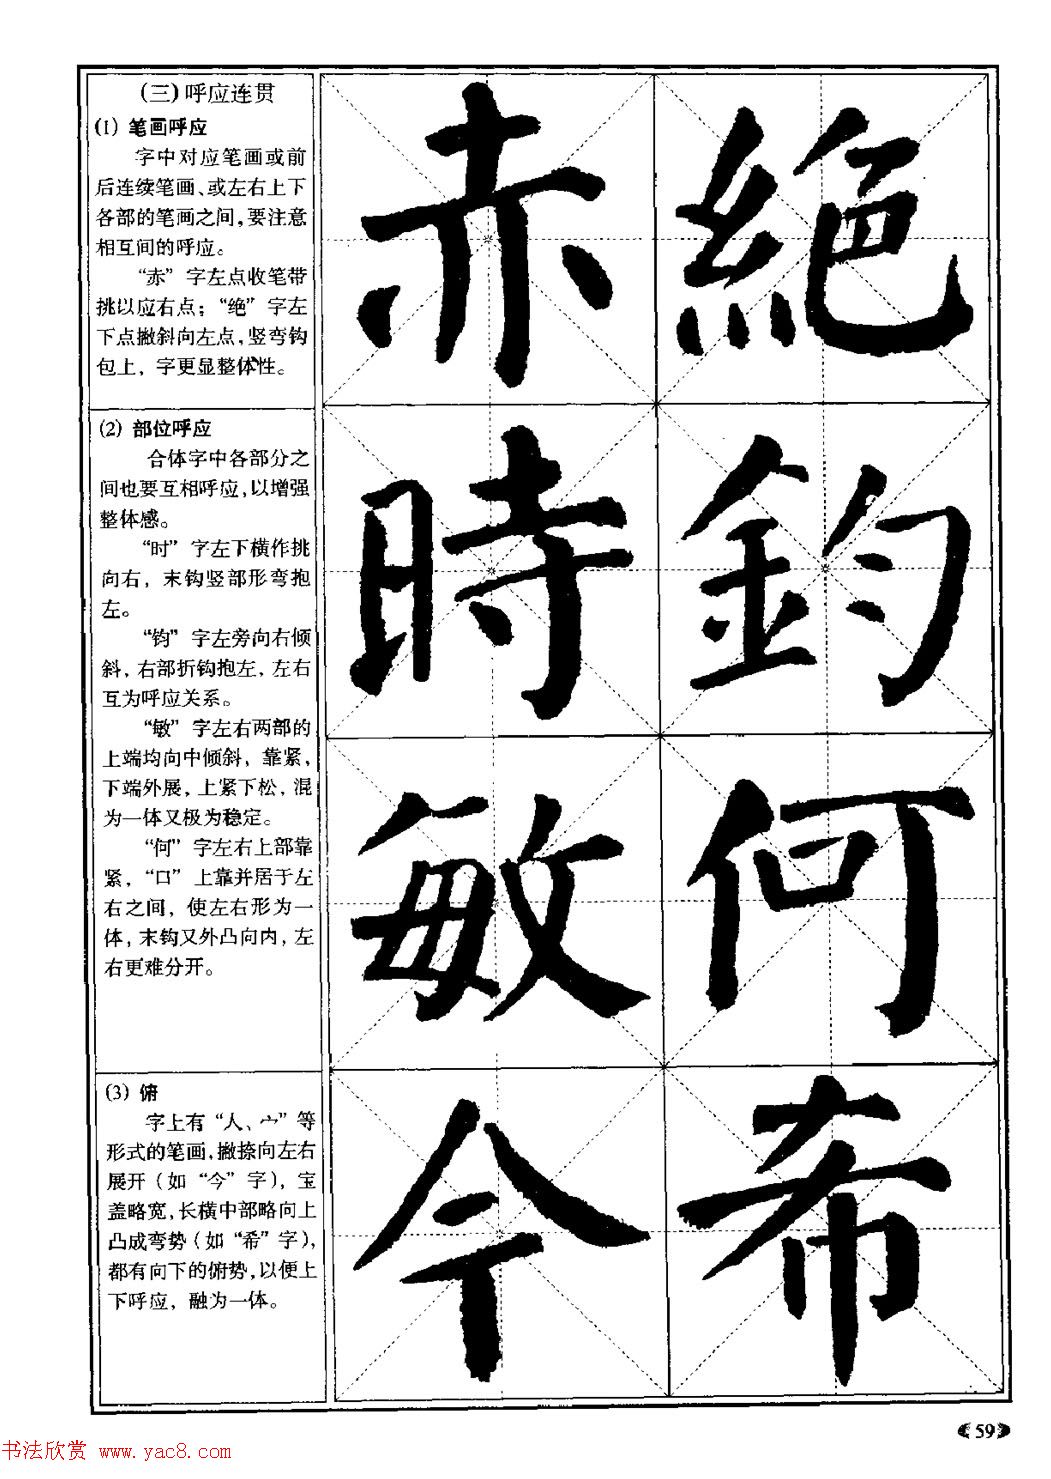 (三)呼应连贯
(1) 笔画呼应
字中对应笔画或前
后连续笔画、或左右上下
各部的笔画之间,要注意
相互间的呼应。
“赤”字左点收笔带
挑以应右点；“绝”字左
下点撇斜向左点,竖弯钩
包上，字更显整体性。
赤 絕
(2) 部位呼应
合体字中各部分之
间也要互相呼应,以增强
整体感。
“时”字左下横作挑
向右，末钩竖部形弯抱
左。
“钧”字左旁向右倾
斜，右部折钩抱左，左右
互为呼应关系。
“敏”字左右两部的
上端均向中倾斜，靠紧，
下端外展，上紧下松，混
为一体又极为稳定。
“何”字左右上部靠
紧，“口”上靠并居于左
右之间，使左右形为一
体，末钩又外凸向内，左
右更难分开。
時 鈞
敏 何
(3) 俯
字上有“人、宀”等
形式的笔画,撇捺向左右
展开（如“今”字），宝
盖略宽,长横中部略向上
凸成弯势（如“希”字），
都有向下的俯势,以便上
下呼应，融为一体。
今 希
59
书法欣赏 www.yac8.com